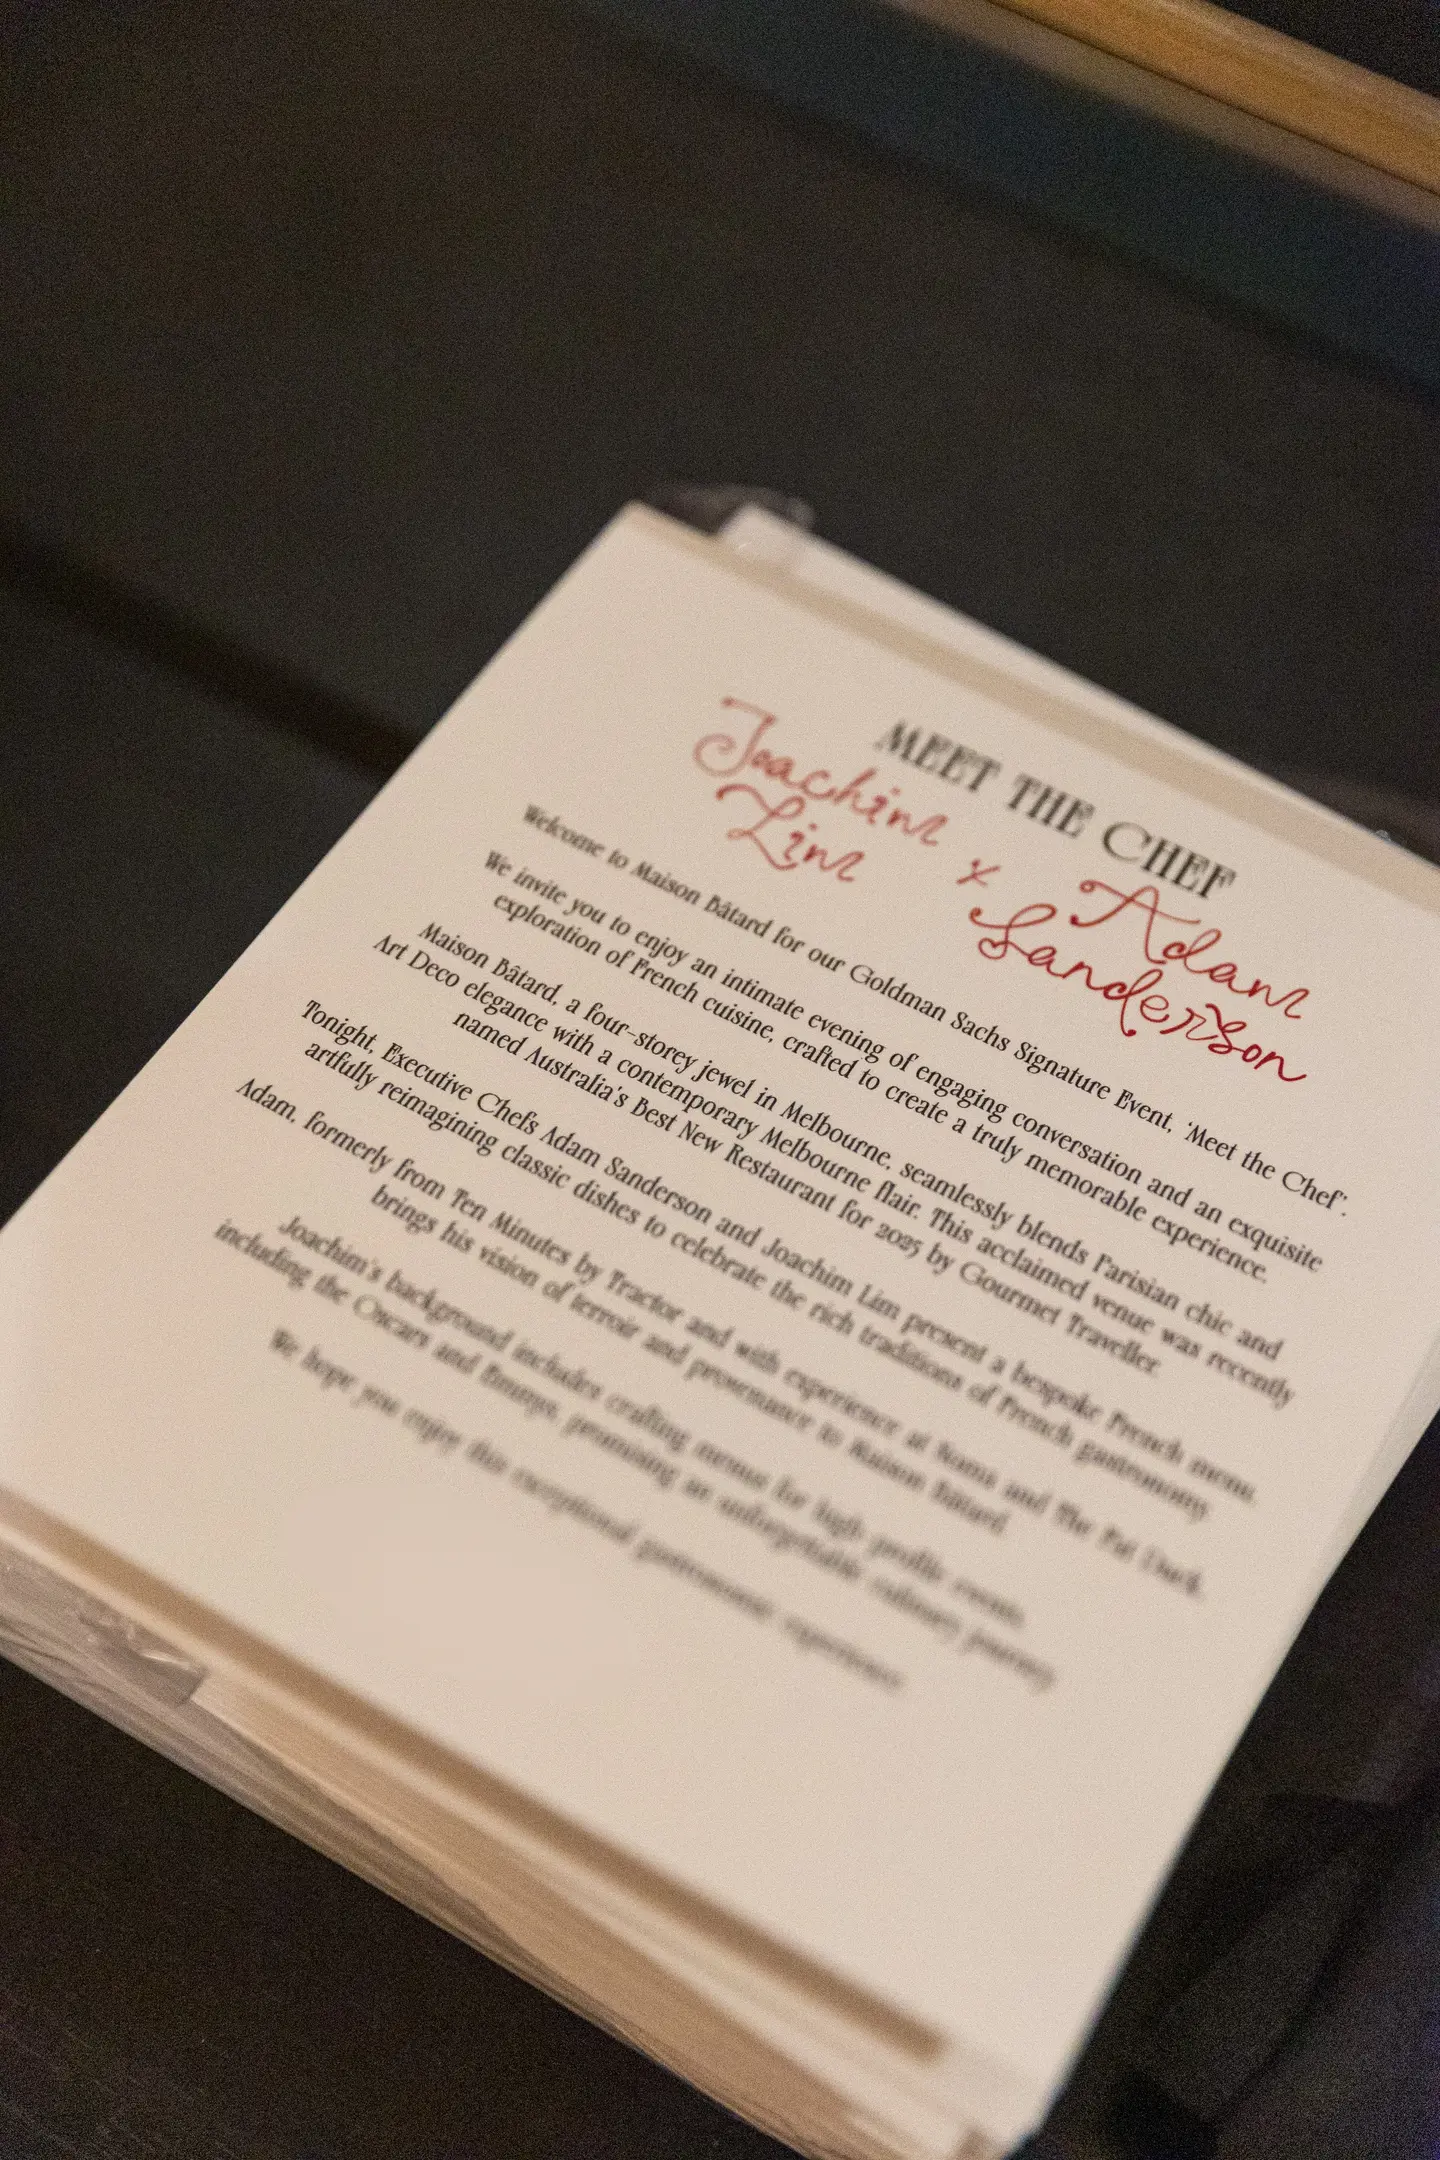 MEET THE CHEF
Joachim Lim x Adam Sanderson
Welcome to Maison Bâtard for our Goldman Sachs Signature Event, 'Meet the Chef'.
We invite you to enjoy an intimate evening of engaging conversation and an exquisite
exploration of French cuisine, crafted to create a truly memorable experience.
Maison Bâtard, a four-storey jewel in Melbourne, seamlessly blends Parisian chic and
Art Deco elegance with a contemporary Melbourne flair. This acclaimed venue was recently
named Australia's Best New Restaurant for 2025 by Gourmet Traveller.
Tonight, Executive Chefs Adam Sanderson and Joachim Lim present a bespoke French menu,
artfully reimagining classic dishes to celebrate the rich traditions of French gastronomy.
Adam, formerly from Ten Minutes by Tractor and with experience at Noma and The Fat Duck,
brings his vision of terroir and provenance to Maison Bâtard.
Joachim's background includes crafting menus for high profile events,
including the Oscars and Emmys, promising an unforgettable culinary journey.
We hope you enjoy this exceptional gastronomic experience.